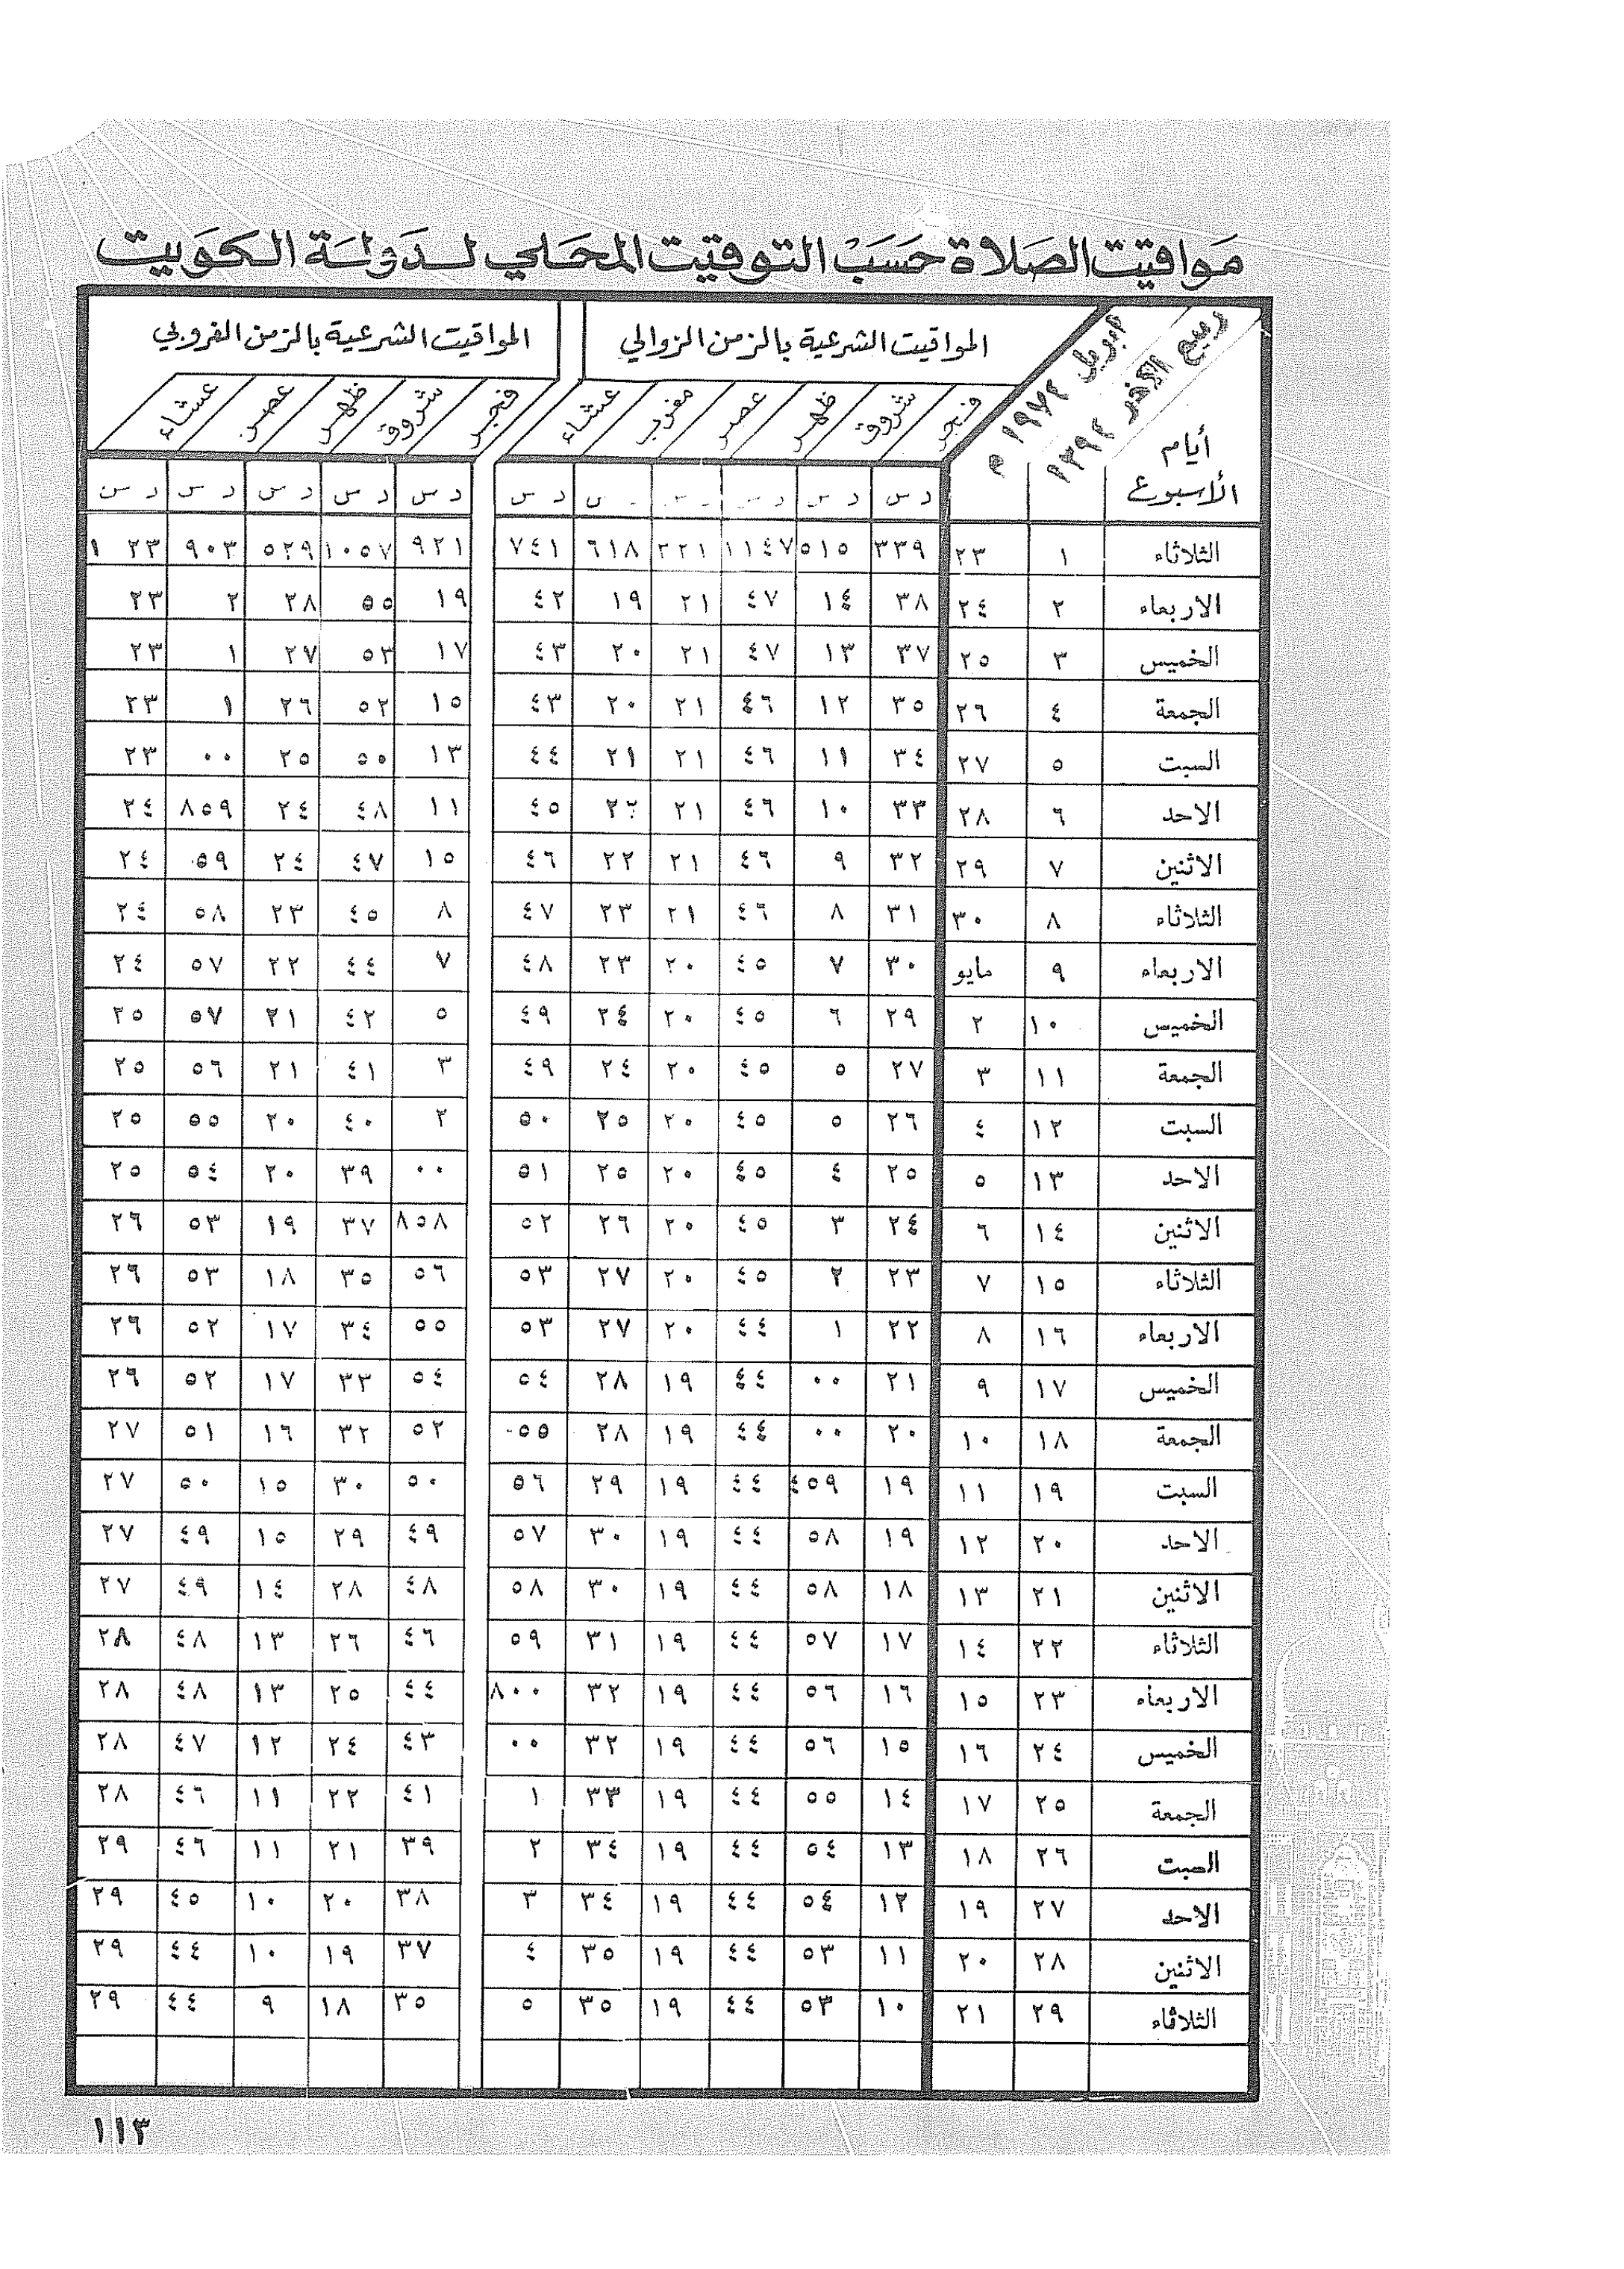 مواقيت الصلاة حسب التوقيت المحلي لدولة الكويت
أيام الأسبوع ربيع الآخر ١٣٩٤ ابريل ١٩٧٤ م المواقيت الشرعية بالزمن الزوالي المواقيت الشرعية بالزمن الغروبي
فجر شروق ظهر عصر مغرب عشاء فجر شروق ظهر عصر عشاء
د س د س د س د س د س د س د س د س د س
الثلاثاء ١ ٢٣ ٣٣٩ ٥١٥ ١١٤٧ ٣٢١ ٦١٨ ٧٤١ ٩٢١ ١٠٥٧ ٥٢٩ ٩٠٣ ١ ٢٣
الاربعاء ٢ ٢٤ ٣٨ ١٤ ٤٧ ٢١ ١٩ ٤٢ ١٩ ٥٥ ٢٨ ٢ ٢٣
الخميس ٣ ٢٥ ٣٧ ١٣ ٤٧ ٢١ ٢٠ ٤٣ ١٧ ٥٣ ٢٧ ١ ٢٣
الجمعة ٤ ٢٦ ٣٥ ١٢ ٤٦ ٢١ ٢٠ ٤٣ ١٥ ٥٢ ٢٦ ١ ٢٣
السبت ٥ ٢٧ ٣٤ ١١ ٤٦ ٢١ ٢١ ٤٤ ١٣ ٥٥ ٢٥ ٠٠ ٢٣
الاحد ٦ ٢٨ ٣٣ ١٠ ٤٦ ٢١ ٢٢ ٤٥ ١١ ٤٨ ٢٤ ٨٥٩ ٢٤
الاثنين ٧ ٢٩ ٣٢ ٩ ٤٦ ٢١ ٢٢ ٤٦ ١٥ ٤٧ ٢٤ ٥٩ ٢٤
الثلاثاء ٨ ٣٠ ٣١ ٨ ٤٦ ٢١ ٢٣ ٤٧ ٨ ٤٥ ٢٣ ٥٨ ٢٤
الاربعاء ٩ مايو ٣٠ ٧ ٤٥ ٢٠ ٢٣ ٤٨ ٧ ٤٤ ٢٢ ٥٧ ٢٤
الخميس ١٠ ٢ ٢٩ ٦ ٤٥ ٢٠ ٢٤ ٤٩ ٥ ٤٢ ٢١ ٥٧ ٢٥
الجمعة ١١ ٣ ٢٧ ٥ ٤٥ ٢٠ ٢٤ ٤٩ ٣ ٤١ ٢١ ٥٦ ٢٥
السبت ١٢ ٤ ٢٦ ٥ ٤٥ ٢٠ ٢٥ ٥٠ ٢ ٤٠ ٢٠ ٥٥ ٢٥
الاحد ١٣ ٥ ٢٥ ٤ ٤٥ ٢٠ ٢٥ ٥١ ٠٠ ٣٩ ٢٠ ٥٤ ٢٥
الاثنين ١٤ ٦ ٢٤ ٣ ٤٥ ٢٠ ٢٦ ٥٢ ٨٥٨ ٣٧ ١٩ ٥٣ ٢٦
الثلاثاء ١٥ ٧ ٢٣ ٢ ٤٥ ٢٠ ٢٧ ٥٣ ٥٦ ٣٥ ١٨ ٥٣ ٢٦
الاربعاء ١٦ ٨ ٢٢ ١ ٤٤ ٢٠ ٢٧ ٥٣ ٥٥ ٣٤ ١٧ ٥٢ ٢٦
الخميس ١٧ ٩ ٢١ ٠٠ ٤٤ ١٩ ٢٨ ٥٤ ٥٤ ٣٣ ١٧ ٥٢ ٢٦
الجمعة ١٨ ١٠ ٢٠ ٠٠ ٤٤ ١٩ ٢٨ ٥٥ ٥٢ ٣٢ ١٦ ٥١ ٢٧
السبت ١٩ ١١ ١٩ ٤٥٩ ٤٤ ١٩ ٢٩ ٥٦ ٥٠ ٣٠ ١٥ ٥٠ ٢٧
الاحد ٢٠ ١٢ ١٩ ٥٨ ٤٤ ١٩ ٣٠ ٥٧ ٤٩ ٢٩ ١٥ ٤٩ ٢٧
الاثنين ٢١ ١٣ ١٨ ٥٨ ٤٤ ١٩ ٣٠ ٥٨ ٤٨ ٢٨ ١٤ ٤٩ ٢٧
الثلاثاء ٢٢ ١٤ ١٧ ٥٧ ٤٤ ١٩ ٣١ ٥٩ ٤٦ ٢٦ ١٣ ٤٨ ٢٨
الاربعاء ٢٣ ١٥ ١٦ ٥٦ ٤٤ ١٩ ٣٢ ٨٠٠ ٤٤ ٢٥ ١٣ ٤٨ ٢٨
الخميس ٢٤ ١٦ ١٥ ٥٦ ٤٤ ١٩ ٣٢ ٠٠ ٤٣ ٢٤ ١٢ ٤٧ ٢٨
الجمعة ٢٥ ١٧ ١٤ ٥٥ ٤٤ ١٩ ٣٣ ١ ٤١ ٢٢ ١١ ٤٦ ٢٨
السبت ٢٦ ١٨ ١٣ ٥٤ ٤٤ ١٩ ٣٤ ٢ ٣٩ ٢١ ١١ ٤٦ ٢٩
الاحد ٢٧ ١٩ ١٢ ٥٤ ٤٤ ١٩ ٣٤ ٣ ٣٨ ٢٠ ١٠ ٤٥ ٢٩
الاثنين ٢٨ ٢٠ ١١ ٥٣ ٤٤ ١٩ ٣٥ ٤ ٣٧ ١٩ ١٠ ٤٤ ٢٩
الثلاثاء ٢٩ ٢١ ١٠ ٥٣ ٤٤ ١٩ ٣٥ ٥ ٣٥ ١٨ ٩ ٤٤ ٢٩
١١٣